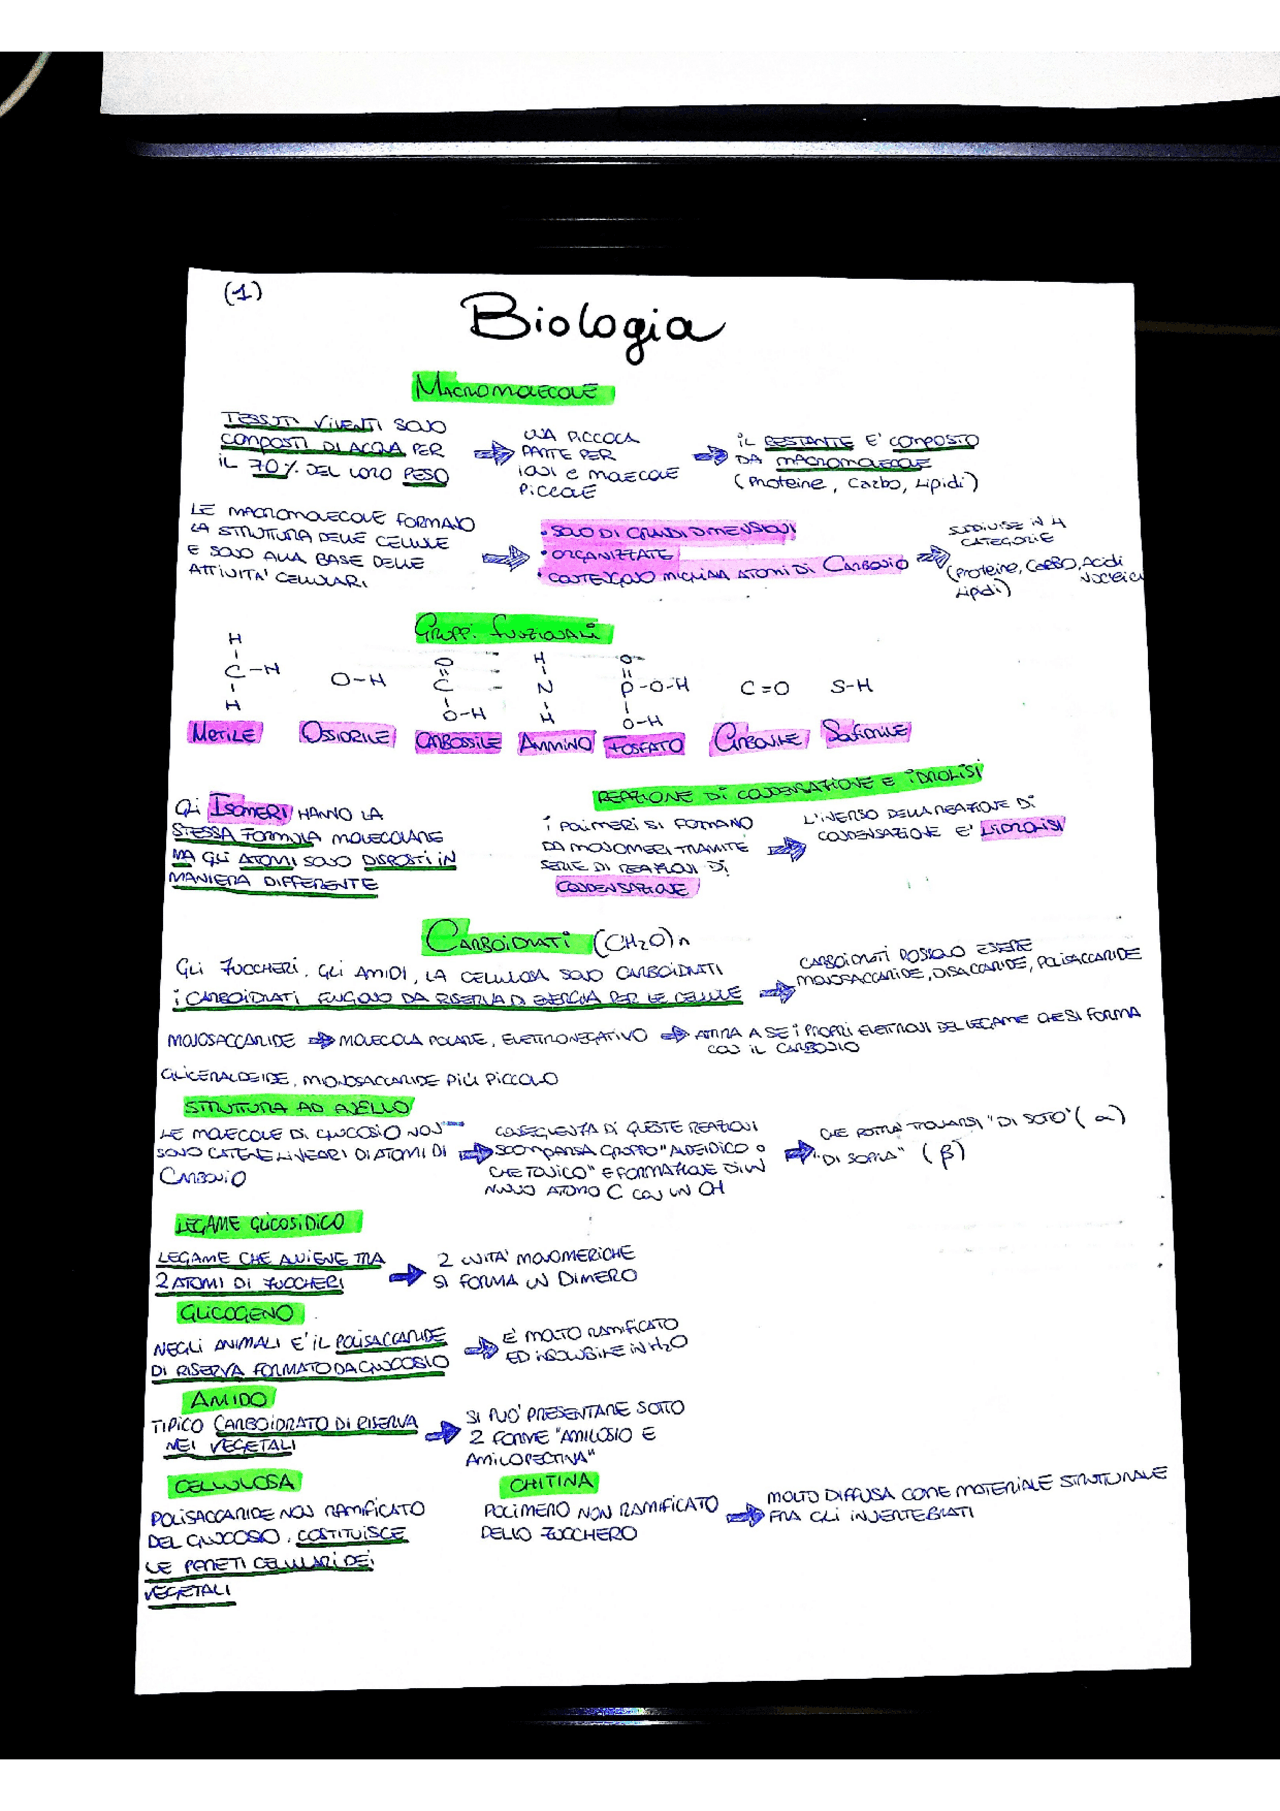 (1)
Biologia
MACROMOLECOLE
TESSUTI VIVENTI SONO
COMPOSTI DI ACQUA PER
IL 70% DEL LORO PESO
UNA PICCOLA
PARTE PER
IONI E MOLECOLE
PICCOLE
IL RESTANTE E' COMPOSTO
DA MACROMOLECOLE
(Proteine, Carbo, Lipidi)
LE MACROMOLECOLE FORMANO
LA STRUTTURA DELLE CELLULE
E SONO ALLA BASE DELLE
ATTIVITA' CELLULARI
• SONO DI GRANDI DIMENSIONI
• ORGANIZZATE
• CONTENGONO MIGLIAIA ATOMI DI CARBONIO
SUDDIVISE IN 4
CATEGORIE
(Proteine, CARBO, Acidi
Nucleici
Lipidi)
GRUPPI FUNZIONALI
H
C-H
H
O-H
O
C
O-H
H
N
H
O
P-O-H
O-H
C=O
S-H
METILE
OSSIDRILE
CARBOSSILE
AMMINO
FOSFATO
CARBONILE
GLI ISOMERI HANNO LA
STESSA FORMULA MOLECOLARE
MA GLI ATOMI SONO DISPOSTI IN
MANIERA DIFFERENTE
REAZIONE DI CONDENSAZIONE E IDROLISI
I POLIMERI SI FORMANO
DA MONOMERI TRAMITE
SERIE DI REAZIONI DI
CONDENSAZIONE
L'INVERSO DELLA REAZIONE DI
CONDENSAZIONE E' L'IDROLISI
CARBOIDRATI (CH2O)n
GLI ZUCCHERI, GLI AMIDI, LA CELLULOSA SONO CARBOIDRATI
I CARBOIDRATI FUNGONO DA RISERVA DI ENERGIA PER LE CELLULE
CARBOIDRATI POSSONO ESSERE
MONOSACCARIDE, DISACCARIDE, POLISACCARIDE
MONOSACCARIDE
MOLECOLA POLARE, ELETTRONEGATIVO
ATTIRA A SE I PROPRI ELETTRONI DEL LEGAME CHE SI FORMA
CON IL CARBONIO
GLICERALDEIDE, MONOSACCARIDE PIÙ PICCOLO
STRUTTURA AD ANELLO
LE MOLECOLE DI GLUCOSIO NON
SONO CATENE LINEARI DI ATOMI DI
CARBONIO
CONSEGUENZA DI QUESTE REAZIONI
SCOMPARSA GRUPPO "ALDEIDICO O
CHETONICO" E FORMAZIONE DI UN
NUOVO ATOMO C CON UN OH
CHE POTRA' TROVARSI "DI SOTTO" (α)
"DI SOPRA" (β)
LEGAME GLICOSIDICO
LEGAME CHE AVVIENE TRA
2 ATOMI DI ZUCCHERI
2 UNITA' MONOMERICHE
SI FORMA UN DIMERO
GLICOGENO
NEGLI ANIMALI E' IL POLISACCARIDE
DI RISERVA FORMATO DA GLUCOSIO
E' MOLTO RAMIFICATO
ED INSOLUBILE IN H2O
AMIDO
TIPICO CARBOIDRATO DI RISERVA
NEI VEGETALI
SI PUO' PRESENTARE SOTTO
2 FORME "AMILOSIO E
AMILOPECTINA"
CELLULOSA
POLISACCARIDE NON RAMIFICATO
DEL GLUCOSIO. COSTITUISCE
LE PARETI CELLULARI DEI
VEGETALI
CHITINA
POLIMERO NON RAMIFICATO
DELLO ZUCCHERO
MOLTO DIFFUSA COME MATERIALE STRUTTURALE
FRA GLI INVERTEBRATI